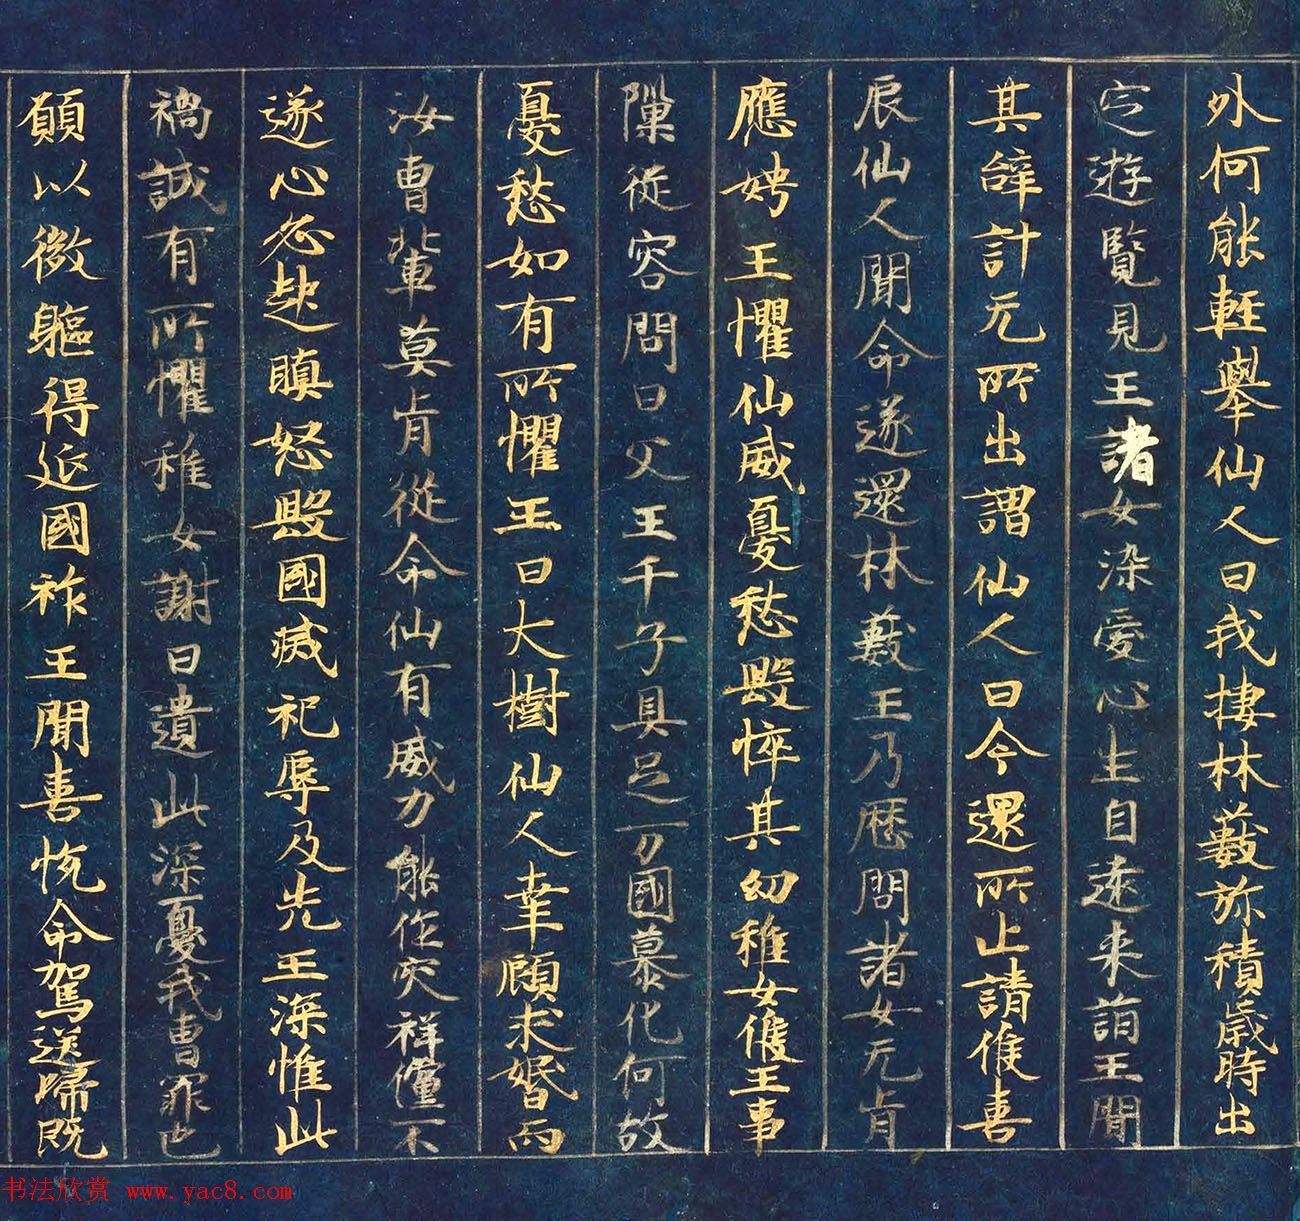 外何能輕舉仙人曰我捿林藪弥積歲時出
㝎遊覽見王諸女染愛心生自遠来請王聞
其辤計无所出謂仙人曰今還所止請俟嘉
辰仙人聞命遂還林藪王乃歷問諸女无肯
應娉王懼仙威憂愁毀悴其幼稚女俟王事
隟從容問曰父王千子具足万國慕化何故
憂愁如有所懼王曰大樹仙人幸顧求婚而
汝曹輩莫肯從命仙有威力能作灾祥儻不
遂心必起瞋怒毀國滅祀辱及先王深惟此
禍誠有所懼稚女謝曰遺此深憂我曹罪也
願以微軀得延國祚王聞喜恱命駕送歸既
书法欣赏 www.yac8.com